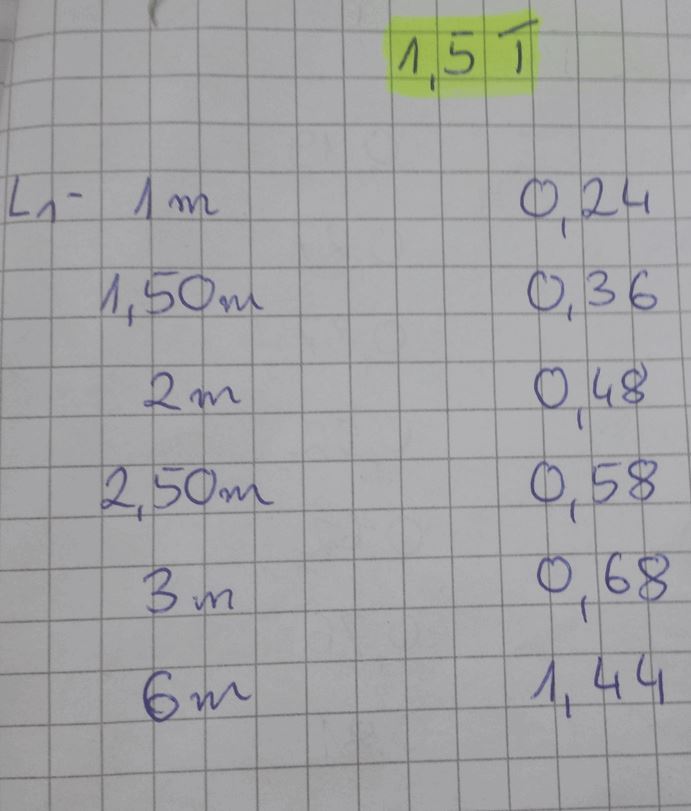 1,5 T
L1- 1m 0,24
1,50m 0,36
2m 0,48
2,50m 0,58
3m 0,68
6m 1,44